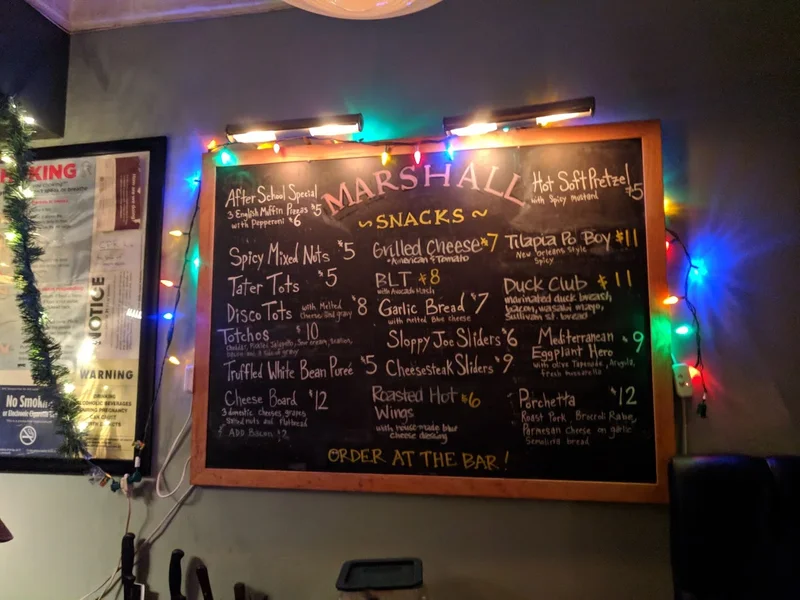 MARSHALL
~SNACKS~
After School Special
3 English Muffin Pizzas $5
with Pepperoni $6
Spicy Mixed Nuts $5
Tater Tots $5
Disco Tots with Melted $8
Cheese and gravy
Totchos $10
Truffled White Bean Pureé $5
Cheese Board $12
3 domestic cheeses, grapes
mixed nuts and flatbread
ADD Bacon $2
Grilled Cheese $7
American & Tomato
BLT $8
with Avocado Mash
Garlic Bread $7
with melted Blue cheese
Sloppy Joe Sliders $6
Cheesesteak Sliders $9
Roasted Hot $6
Wings
with house-made blue
cheese dressing
Hot Soft Pretzel $5
with Spicy Mustard
Tilapia Po Boy $11
New Orleans Style
Spicy
Duck Club $11
marinated duck breast,
bacon, wasabi mayo,
Sullivan st. bread
Mediterranean $9
Eggplant Hero
with olive Tapenade, Arugula,
fresh mozzarella
Porchetta $12
Roast Pork, Broccoli Rabe,
Parmesan Cheese on garlic
Semolina bread
ORDER AT THE BAR!
No Smoking
or Electronic Cigarette Use
NOTICE
WARNING
DRINKING
ALCOHOLIC BEVERAGES
DURING PREGNANCY